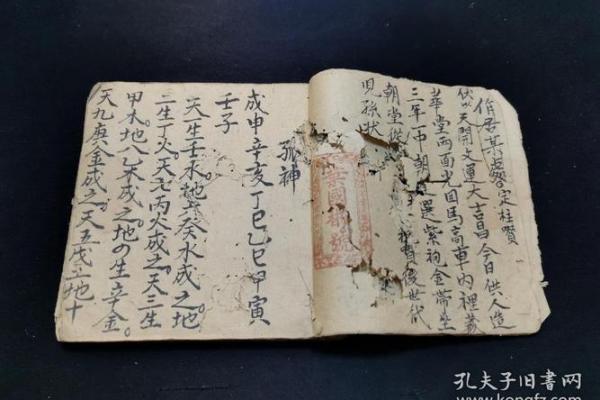 君某
伏以天開文運大吉昌今日供人造
華堂两面光国馬高車内裡
三年一中朝 選紫袍金帶坐
朝堂從 後世代
児孫狀
孤神
戊申辛亥丁巳乙巳甲寅
壬子
天生壬水。地六癸水成之。地
二生丁火。天七丙火成之。天三生
甲木。地八乙木成之。地四生辛金。
天九庚金成之。天五戊土地十
孔夫子旧书网
www.kongfz.com